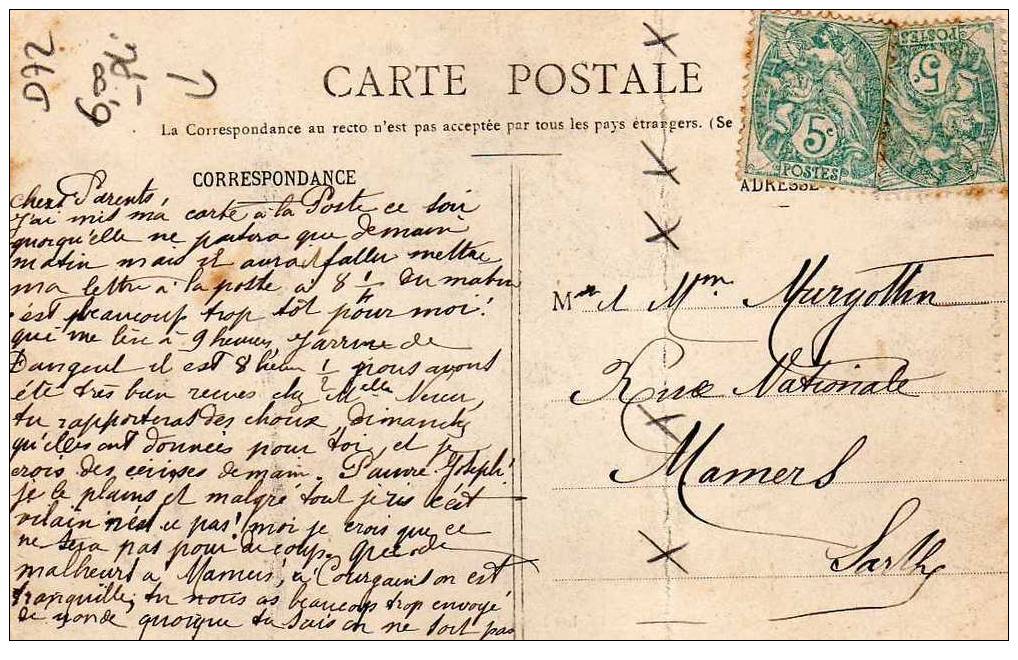 D72
6,8
- pli
CARTE POSTALE
La Correspondance au recto n'est pas acceptée par tous les pays étrangers. (Se
CORRESPONDANCE
ADRESSE
5c
POSTES
5c
POSTES
chers Parents,
J'ai mis ma carte à la Poste ce soir
quoiqu'elle ne partira que demain
matin mais il aurait fallu mettre
ma lettre à la poste à 8 1/4 du matin
c'est beaucoup trop tôt pour moi!
qui me lève à 9 heures. J'arrive de
Dangeul il est 8 heures 1/2 nous avons
été très bien reçues chez Melle
tu rapporteras des choux, Dimanche,
qu'elles ont données pour toi, et je
crois des cerises demain. Pauvre Joseph!
je le plains et malgré tout je ris c'est
vilain n'est ce pas! moi je crois que ce
ne sera pas pour ce coup. Que de
malheurs à Mamers, à Courgains on est
tranquille; tu nous as beaucoup trop envoyé
de monde quoique tu sais on ne soit pas
Mr & Mme Murgottin
Rue Nationale
Mamers
Sarthe